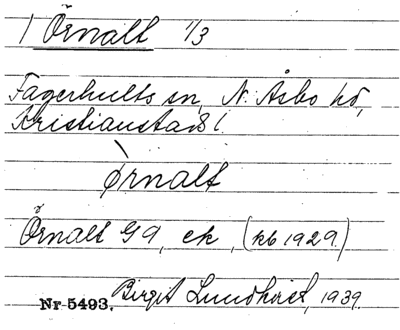 1 Örnalt 1/3
Fagerhults sn, N. Åsbo hd,
Kristianstads l.
ørnalt
Örnalt Gd, ek, (kb 1929.)
Nr 5493. Birgit Lundkvist, 1939.